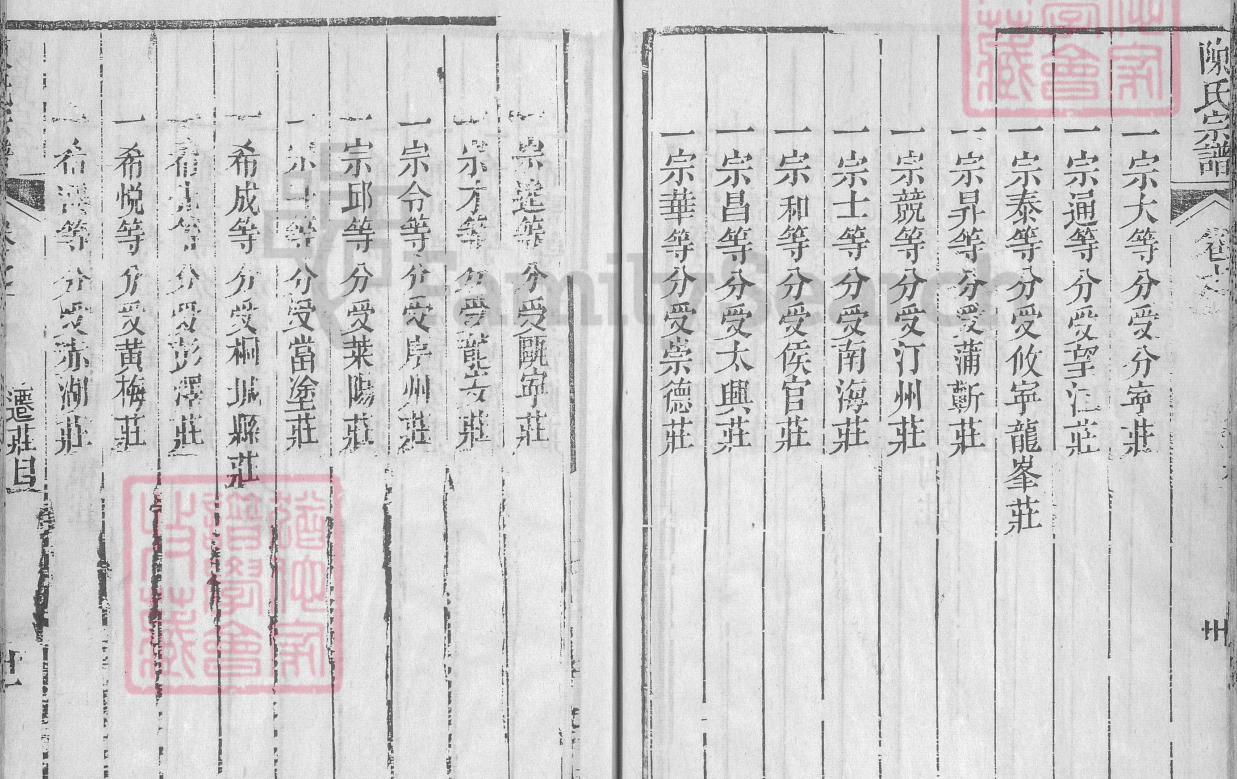 陳氏宗譜
卷七
卅
一宗大等分受分寧莊
一宗通等分受望江莊
一宗泰等分受攸寧龍峯莊
一宗昇等分受蒲蘄莊
一宗競等分受汀州莊
一宗士等分受南海莊
一宗和等分受侯官莊
一宗昌等分受太興莊
一宗華等分受崇德莊
一宗達等分受甌寧莊
一宗才等分受莊
一宗令等分受州莊
一宗邱等分受萊陽莊
一宗等分受當塗莊
一希成等分受桐城縣莊
一希等分受彭澤莊
一希悅等分受黃梅莊
一希等分受赤湖莊
遷莊目
FamilySearch